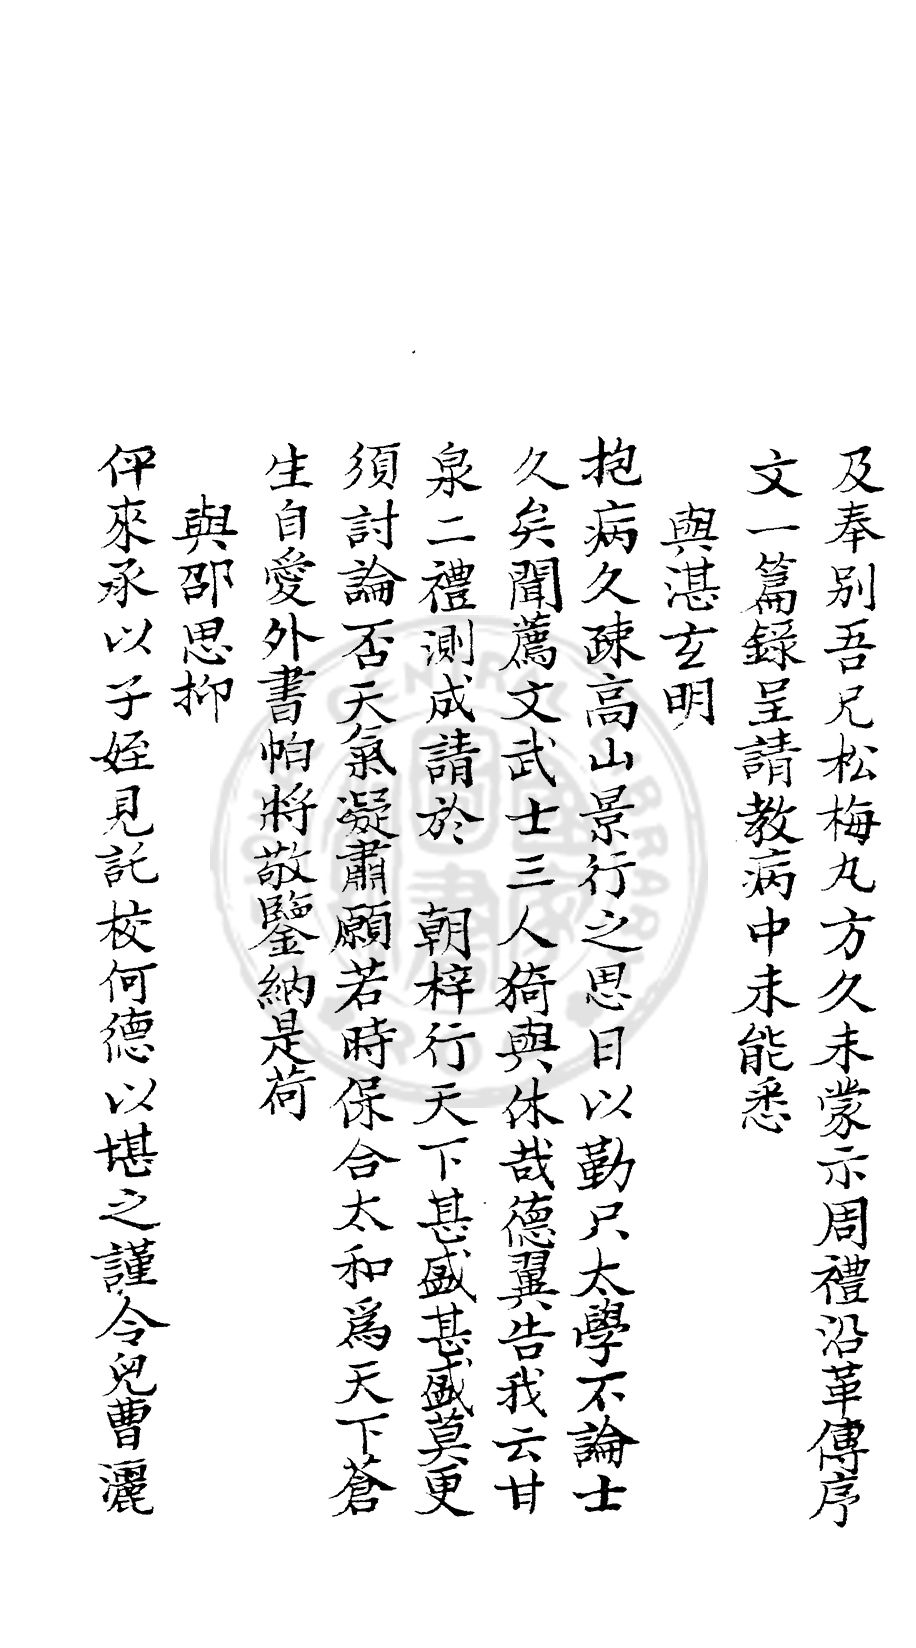 及奉别吾兄松梅丸方久未蒙示周禮沿革傳序
文一篇錄呈請教病中未能悉
與湛玄明
抱病久疎高山景行之思日以勤只太學不論士
久矣聞薦文武士三人猗與休哉德翼告我云甘
泉二禮測成請於 朝梓行天下甚盛甚盛莫更
須討論否天氣凝肅願若時保合太和爲天下蒼
生自愛外書帕將敬鑒納是荷
與邵思抑
伻來承以子姪見託校何德以堪之謹令兒曹灑